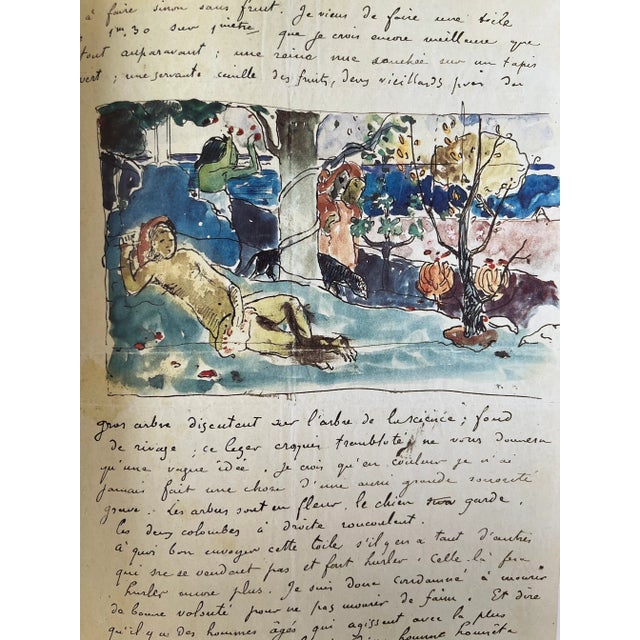 à faire sinon sans fruit. Je viens de faire une toile
de 1m30 sur 1 mètre que je crois encore meilleure que
tout auparavant ; une reine nue couchée sur un tapis
vert ; une servante cueille des fruits, deux vieillards près du
gros arbre discutent sur l'arbre de la science ; fond
de rivage ; ce léger croquis tremblotté ne vous donnera
qu'une vague idée. Je crois qu'en couleur je n'ai
jamais fait une chose d'une aussi grande sonorité
grave. Les arbres sont en fleur, le chien garde,
les deux colombes à droite roucoulent.
à quoi bon envoyer cette toile s'il y en a tant d'autres
qui ne se vendent pas et font hurler. Celle-là fera
hurler encore plus. Je suis donc condamné à mourir
de bonne volonté pour ne pas mourir de faim. Et dire
qu'il y a des hommes âgés qui agissent avec la plus
homme honnête